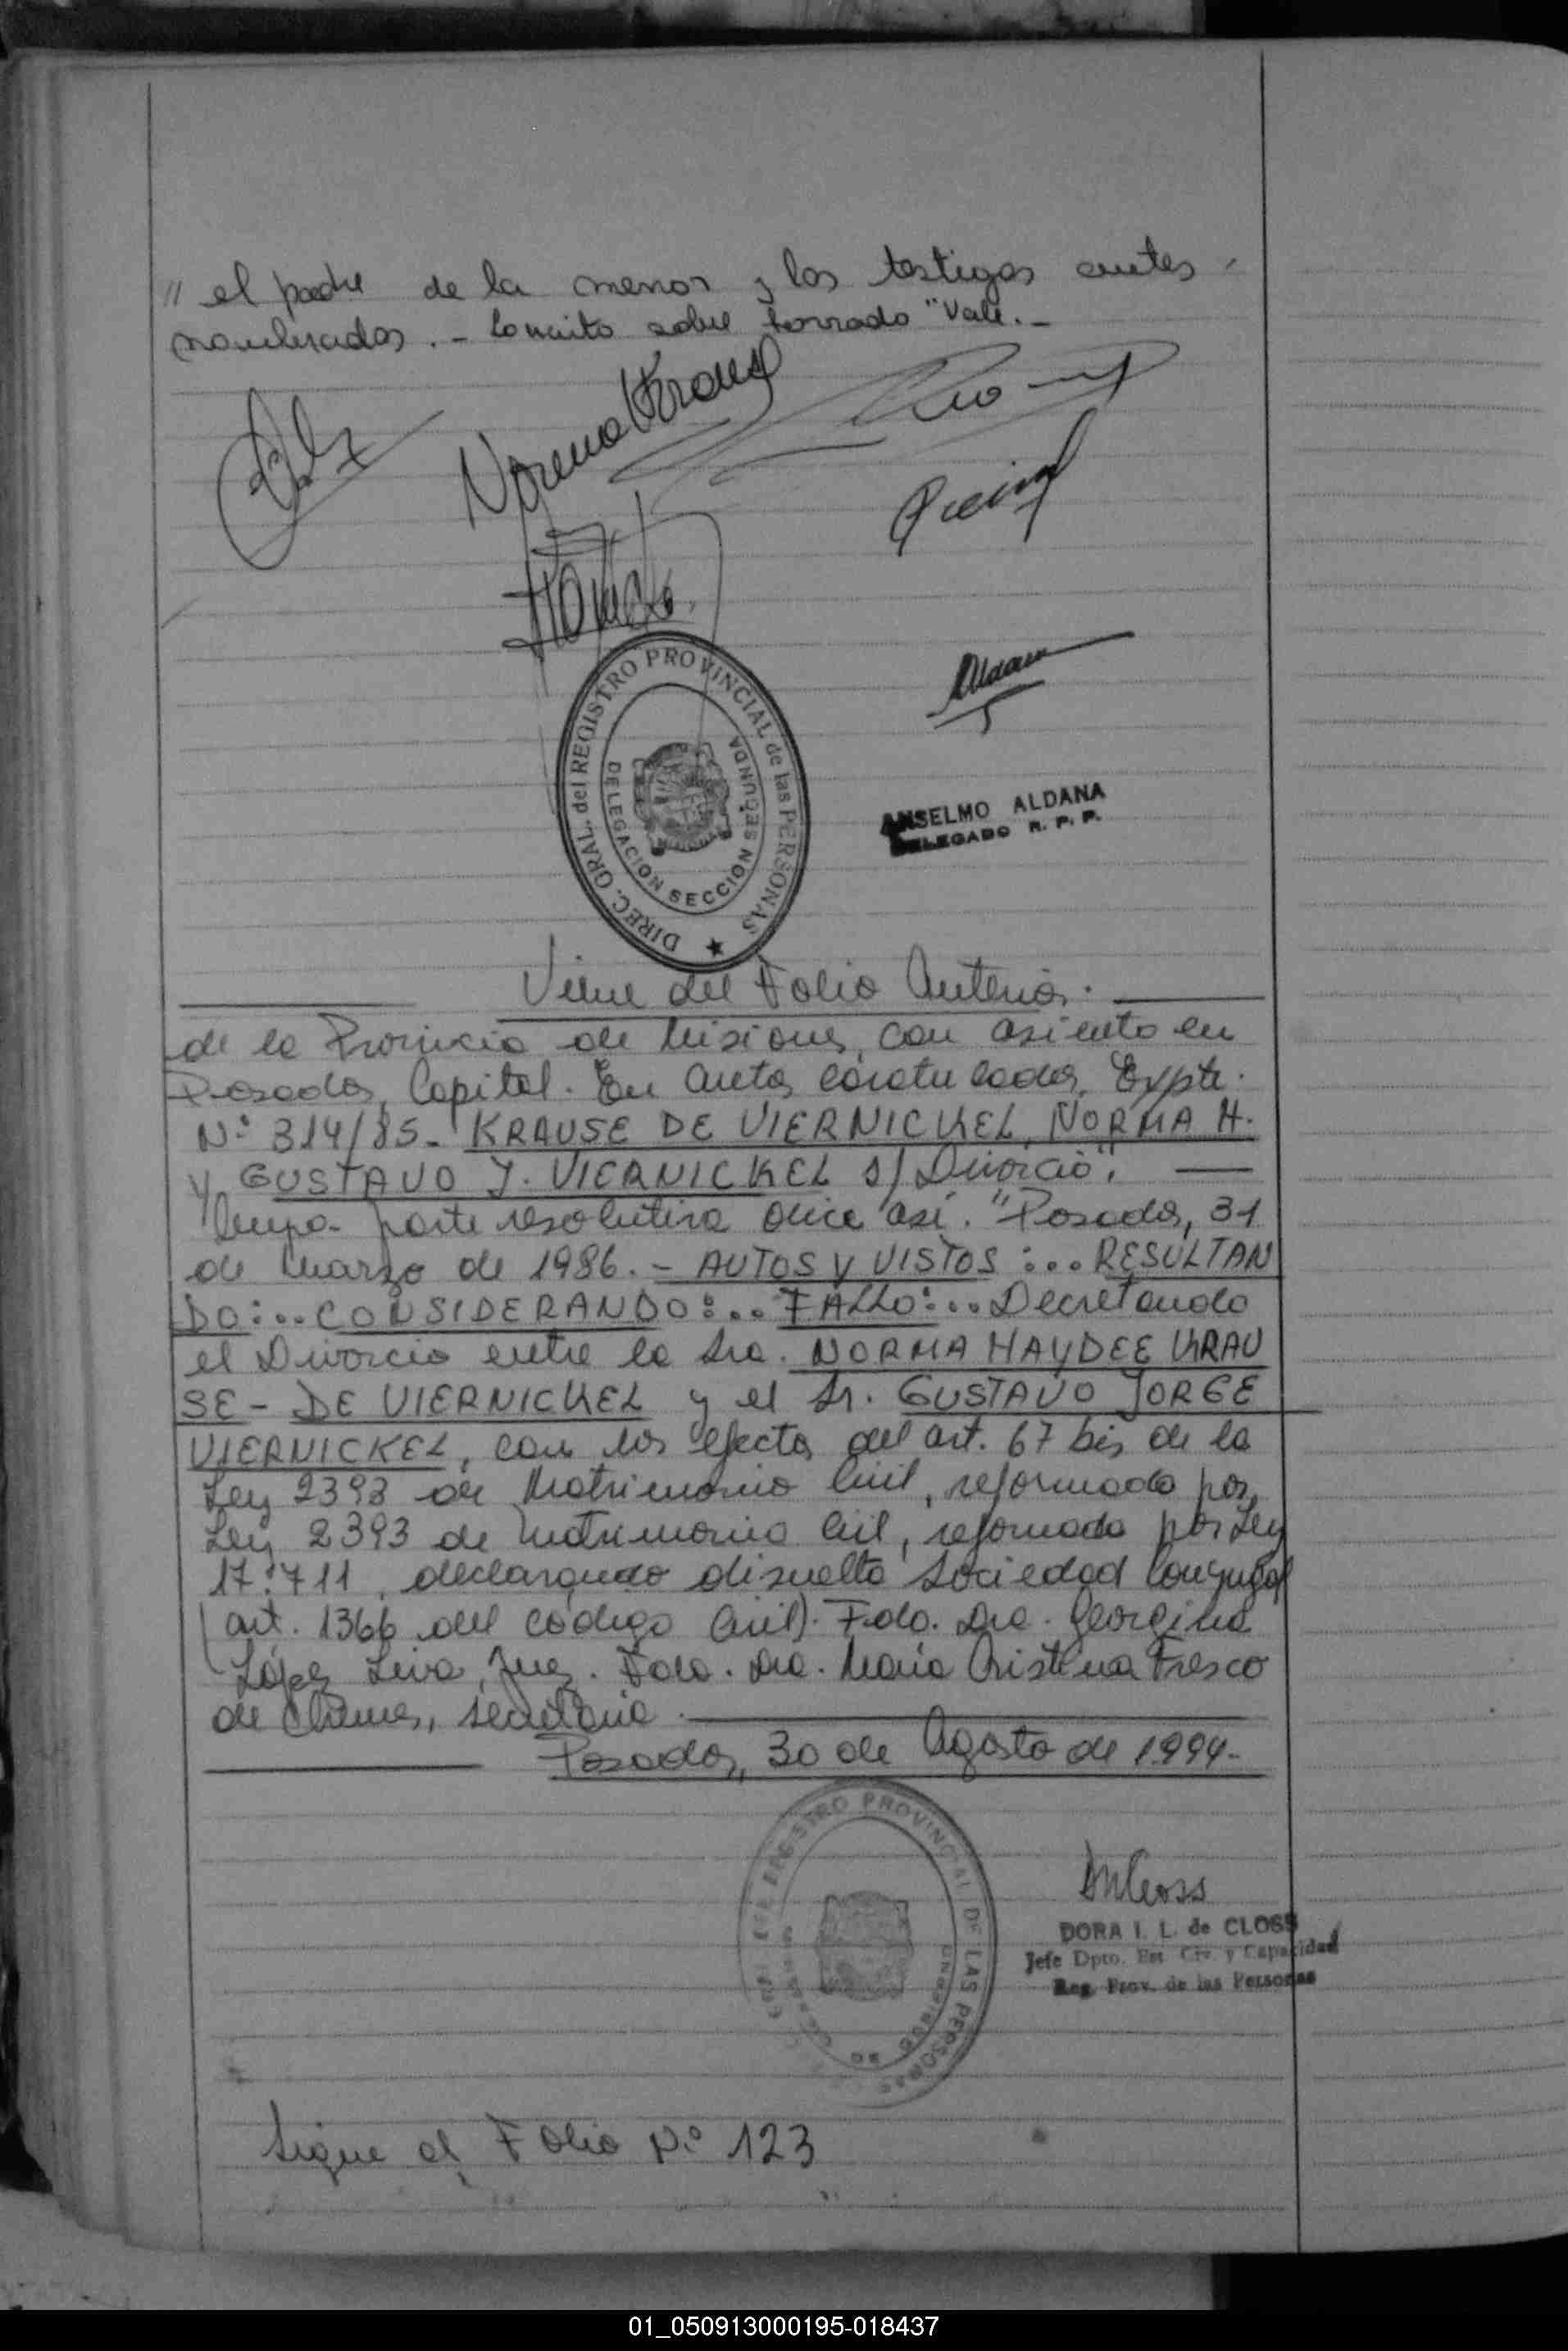 " el padre de la menor y los testigos antes
nombrados.- Lo escrito sobre borrado "Vale.-
Norma Krause
DIREC. GRAL. del REGISTRO PROVINCIAL de las PERSONAS
DELEGACION SECCION SEGUNDA
Aldana
ANSELMO ALDANA
DELEGADO R. P. P.
Viene del Folio Anterior.
de la Provincia de Misiones, con asiento en
Posadas, Capital. En Autos caratulados, Expte.
Nº 314/85- "KRAUSE DE VIERNICKEL, NORMA H.
y GUSTAVO J. VIERNICKEL s/Divorcio",
Cuya- parte resolutiva dice así. "Posadas, 31
de Marzo de 1986.- AUTOS Y VISTOS:... RESULTAN
DO:... CONSIDERANDO:... FALLO:... Decretando
el Divorcio entre la Sra. NORMA HAYDEE KRAU
SE- DE VIERNICKEL y el Sr. GUSTAVO JORGE
VIERNICKEL, con los efectos del art. 67 bis de la
Ley 2393 de Matrimonio Civil, reformado por
Ley 2393 de Matrimonio Civil, reformado por Ley
17.711, declarando disuelta Sociedad Conyugal
(art. 1366 del código Civil). Fdo. Dra. Georgina
López Leiva, Juez. Fdo. Dra. María Cristina Fresco
de secretaria.
Posadas, 30 de Agosto de 1994-
REGISTRO PROVINCIAL DE LAS PERSONAS
DORA I. L. de CLOSS
Jefe Dpto. Est. Civ. y Capacidad
Reg. Prov. de las Personas
Sigue al Folio Nº 123
01_050913000195-018437